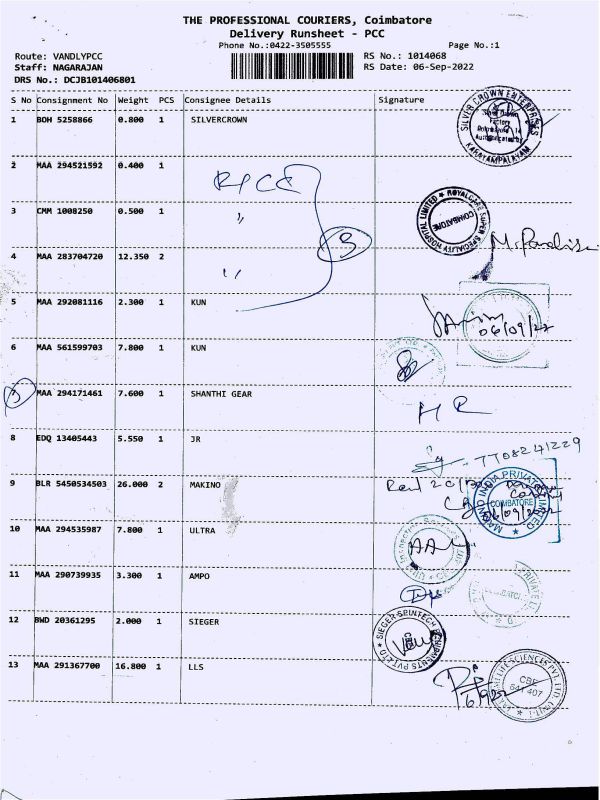 THE PROFESSIONAL COURIERS, Coimbatore
Delivery Runsheet - PCC
Phone No.:0422-3505555 Page No.:1
Route: VANDLYPCC RS No.: 1014068
Staff: NAGARAJAN RS Date: 06-Sep-2022
DRS No.: DCJB101406801
S No Consignment No Weight PCS Consignee Details Signature
1 BOH 5258866 0.800 1 SILVERCROWN
SILVER CROWN ENTERPRISES
KARAYAMPALAYAM
2 MAA 294521592 0.400 1
RPCC
3 CMM 1008250 0.500 1
"
3
ROYALCARE SUPER SPECIALITY HOSPITAL LIMITED
COIMBATORE
4 MAA 283704720 12.350 2
"
5 MAA 292081116 2.300 1 KUN
06/09/22
6 MAA 561599703 7.800 1 KUN
7 MAA 294171461 7.600 1 SHANTHI GEAR
HR
8 EDQ 13405443 5.550 1 JR
7708241229
9 BLR 5450534503 26.000 2 MAKINO
MAKINO INDIA PRIVATE LIMITED
COIMBATORE
06/09/2022
10 MAA 294535987 7.800 1 ULTRA
11 MAA 290739935 3.300 1 AMPO
12 BWD 20361295 2.000 1 SIEGER
SIEGER SPINTECH EQUIPMENTS PVT LTD
13 MAA 291367700 16.800 1 LLS
LIFE SCIENCES PVT. LTD.
CBE
641 407
6/9/22